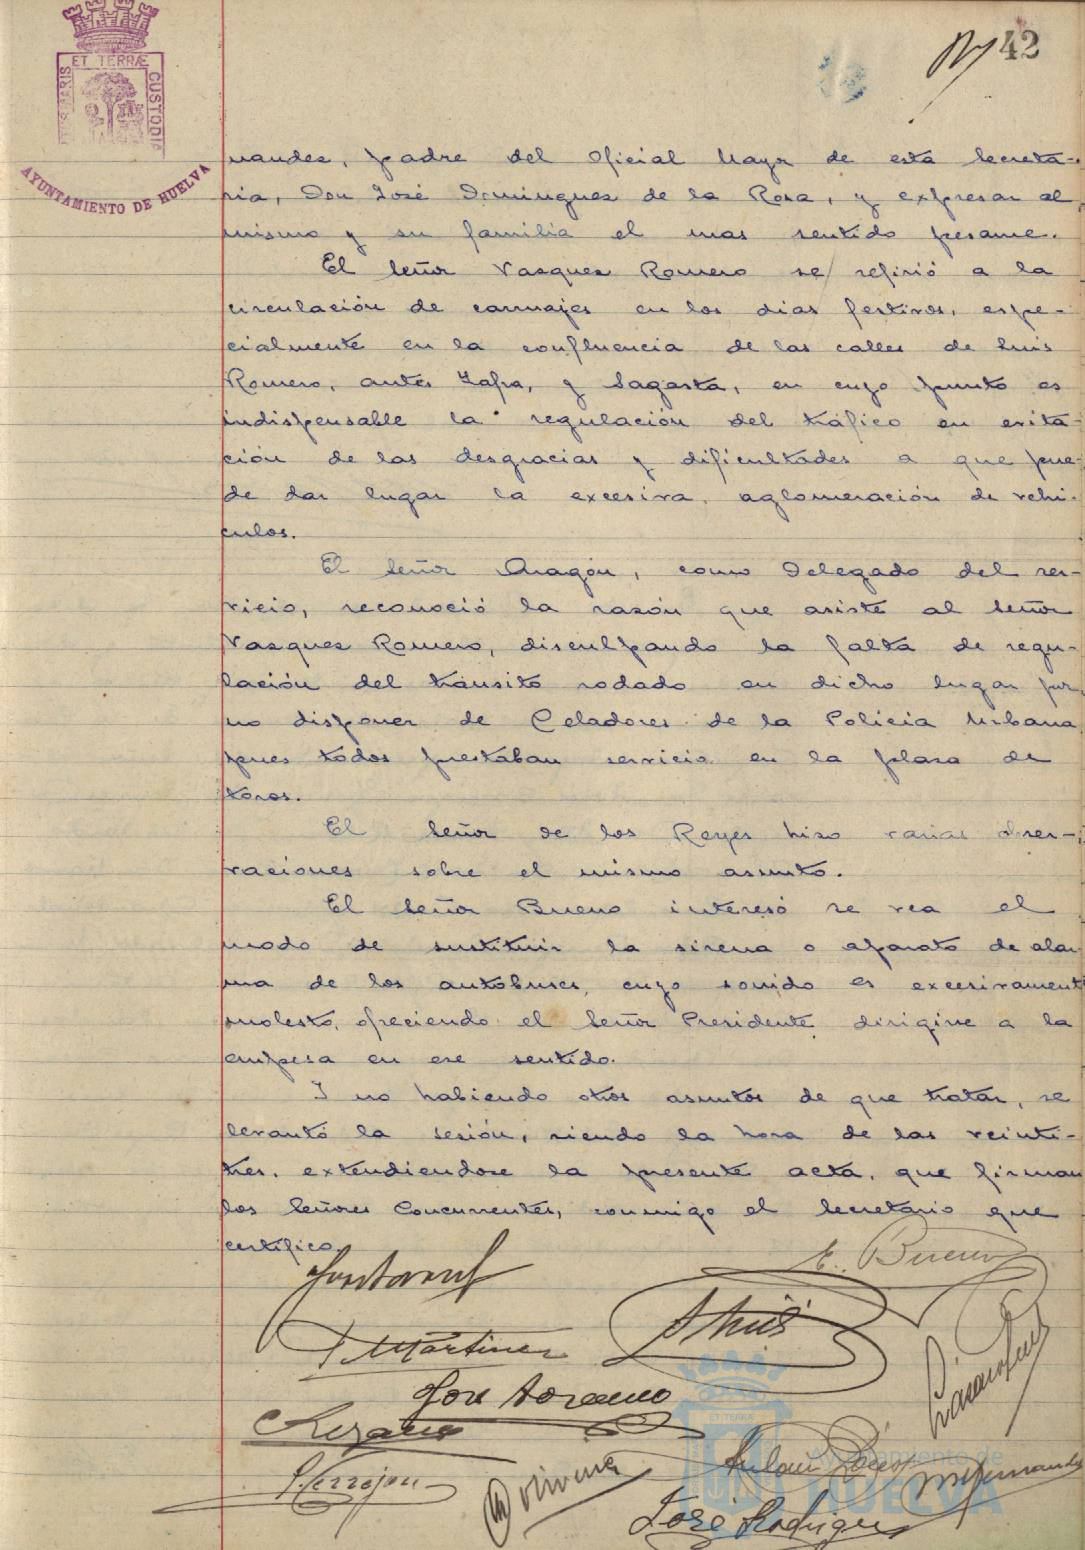 42
ET TERRÆ
CUSTODI
AYUNTAMIENTO DE HUELVA
nandez, padre del Oficial Mayor de esta Secreta-
ria, Don José Dominguez de la Rosa, y expresar al
mismo y su familia el mas sentido pesame.
El Señor Vazquez Romero se refirió a la
circulación de carruajes en los dias festivos, espe-
cialmente en la confluencia de las calles de Luis
Romero, antes Zafra, y Sagasta, en cuyo punto es
indispensable la regulación del tráfico en evita-
ción de las desgracias y dificultades a que pue-
de dar lugar la excesiva aglomeración de vehi-
culos.
El Señor Aragón, como Delegado del ser-
vicio, reconoció la razón que asiste al Señor
Vazquez Romero, disculpando la falta de regu-
lación del tránsito rodado en dicho lugar por
no disponer de Celadores de la Policia Urbana
pues todos prestaban servicio en la plaza de
toros.
El Señor de los Reyes hizo varias obser-
vaciones sobre el mismo asunto.
El Señor Bueno interesó se vea el
modo de sustituir la sirena o aparato de alar-
ma de los autobuses, cuyo sonido es excesivament
molesto, ofreciendo el Señor Presidente dirigirse a la
empresa en ese sentido.
Y no habiendo otros asuntos de que tratar, se
levantó la sesión, siendo la hora de las veinti-
tres, extendiendose la presente acta, que firman
los Señores Concurrentes, conmigo el Secretario que
certifico.
E. Bueno
Martinez
José
Cerrejon
Hernandez
José Rodriguez
ET TERRÆ
Ayuntamiento de
HUELVA